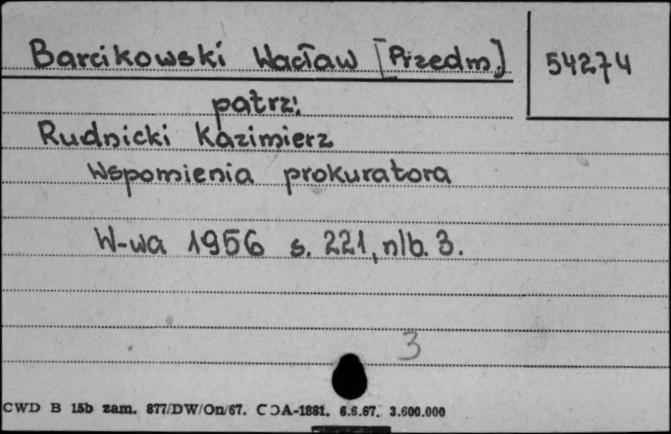 Barcikowski Wacław [Przedm.]
54274
patrz:
Rudnicki Kazimierz
Wspomienia prokuratora
W-wa 1956 s. 221, nlb. 3.
3
CWD B 15b zam. 877/DW/On/67. CDA-1881. 6.6.67. 3.600.000